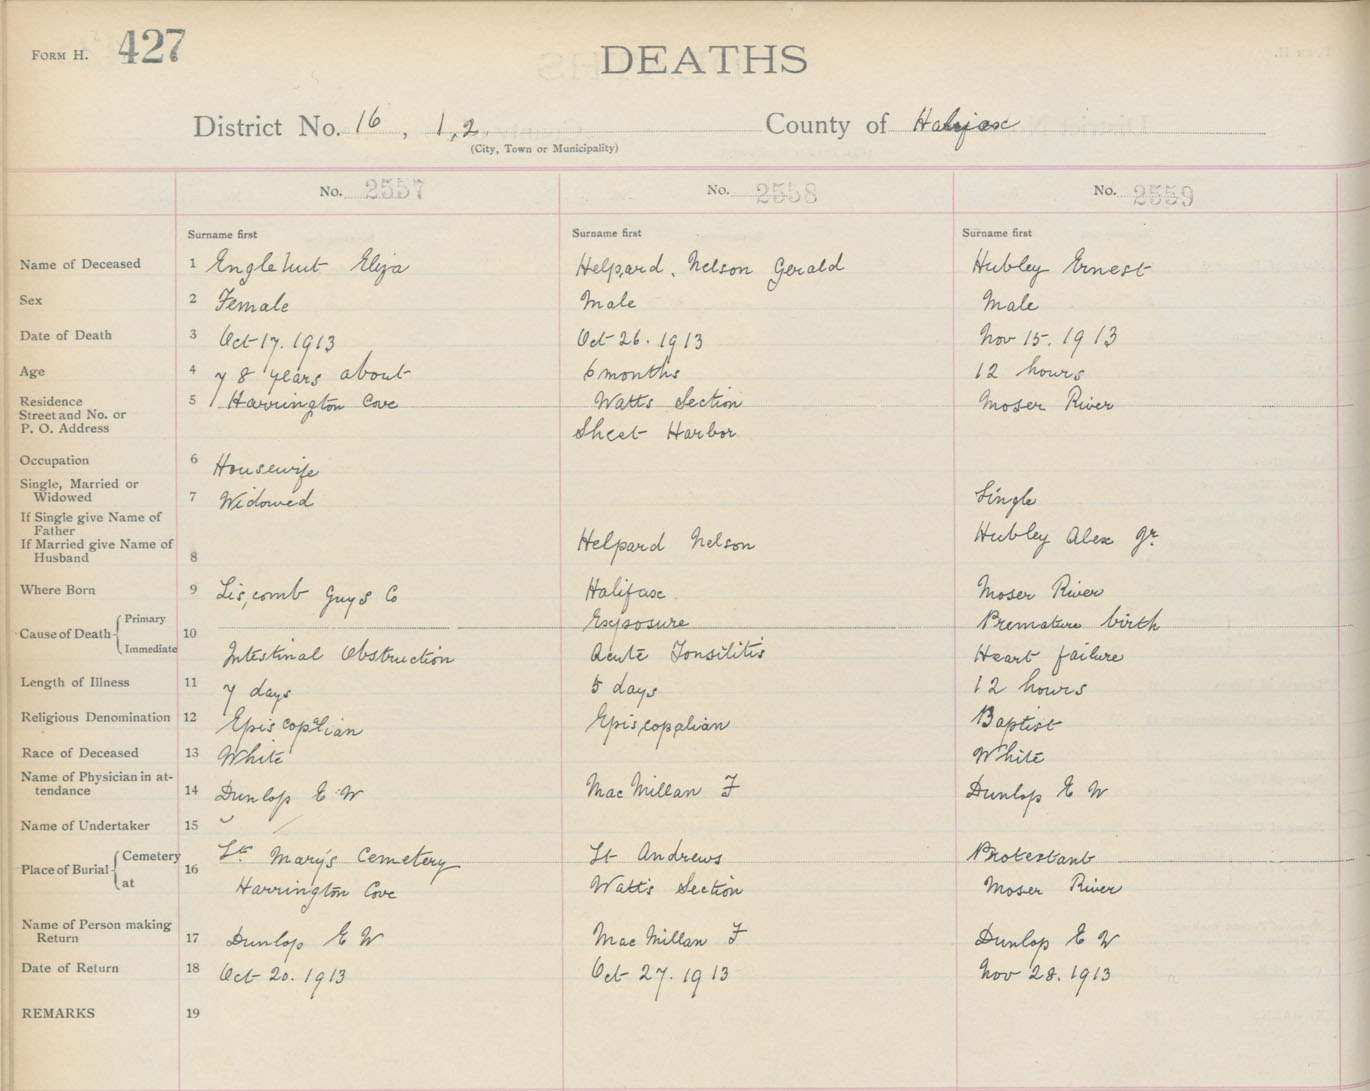 FORM H. 427
DEATHS
District No. 16, 1,2. County of Halifax
(City, Town or Municipality)
No. 2557 No. 2558 No. 2559
Surname first Surname first Surname first
Name of Deceased 1 Englehut Eliza Helpard, Nelson Gerald Hubley Ernest
Sex 2 Female Male Male
Date of Death 3 Oct 17. 1913 Oct 26. 1913 Nov 15. 1913
Age 4 78 years about 6 months 12 hours
Residence 5 Harrington Cove Watts Section Moser River
Street and No. or
P. O. Address Sheet Harbor
Occupation 6 Housewife
Single, Married or
Widowed 7 Widowed Single
If Single give Name of
Father Hubley Alex Jr.
If Married give Name of
Husband 8 Helpard Nelson
Where Born 9 Liscomb Guys Co Halifax Moser River
Cause of Death Primary 10 Exposure Premature birth
Immediate Intestinal Obstruction Acute Tonsilitis Heart failure
Length of Illness 11 7 days 5 days 12 hours
Religious Denomination 12 Episcopalian Episcopalian Baptist
Race of Deceased 13 White White
Name of Physician in at-
tendance 14 Dunlop E W MacMillan F Dunlop E W
Name of Undertaker 15
Place of Burial Cemetery 16 St. Mary's Cemetery St Andrews Protestant
at Harrington Cove Watts Section Moser River
Name of Person making
Return 17 Dunlop E W MacMillan F Dunlop E W
Date of Return 18 Oct 20. 1913 Oct 27. 1913 Nov 28. 1913
REMARKS 19